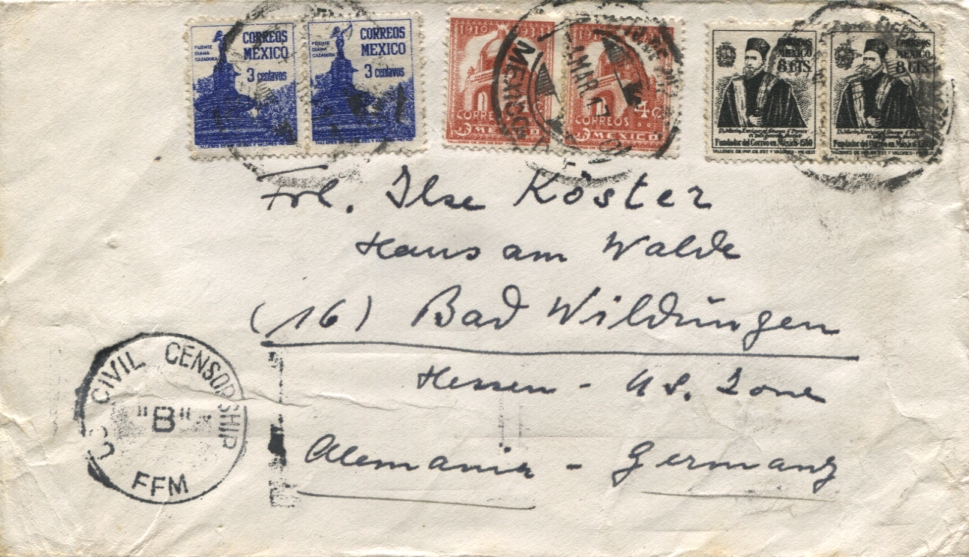 FUENTE DIANA CAZADORA
CORREOS MEXICO
3 centavos
FUENTE DIANA CAZADORA
CORREOS MEXICO
3 centavos
1910
CORREOS
MEXICO
CORREOS
MEXICO
4 C
MEXICO
MAR
8 CTS
8 CTS
Fundador del Correo en México-1580
Fundador del Correo en México-1580
Frl. Ilse Köster
Haus am Walde
(16) Bad Wildungen
Hessen - US. Zone
Alemania - Germany
CIVIL CENSORSHIP
"B"
FFM